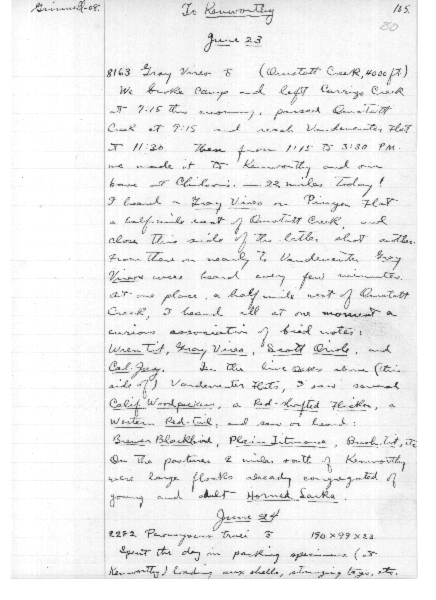 Grinnell-08. To Kenworthy 105.
80
June 23
8163 Gray Vireo ♂ (Omstott Creek, 4000 ft)
We broke camp and left Carrizo Creek
at 7:15 this morning, passed Omstott
Creek at 9:15 and reach Vandeventer Flat
at 11:30 Then from 1:15 to 3:30 P.M.
we made it to Kenworthy and our
base at — 22 miles today!
I heard a Gray Vireo on Pinyon Flat
a half-mile east of Omstott Creek, and
close this side of the latter shot another.
From there on nearly to Vandeventer Gray
Vireos were heard every few minutes.
At one place, a half mile west of Omstott
Creek, I heard all at one moment a
curious association of bird notes:
Wren-tit, Gray Vireo, Scott Oriole, and
Cal. Jay. In the live oaks above (this
side of) Vandeventer Flats, I saw several
Calif Woodpeckers, a Red-shafted Flicker, a
Western Red-tail, and saw or heard:
Brewer Blackbird, Plain Titmouse, Bush-tit, etc
On the pastures 2 miles south of Kenworthy
were large flocks already congregated of
young and adult Horned Larks.
June 24
2272 Peromyscus truei ♂ 190 x 99 x 23
Spent the day in packing specimens (at
Kenworthy) loading aux shells, stringing tags, etc.